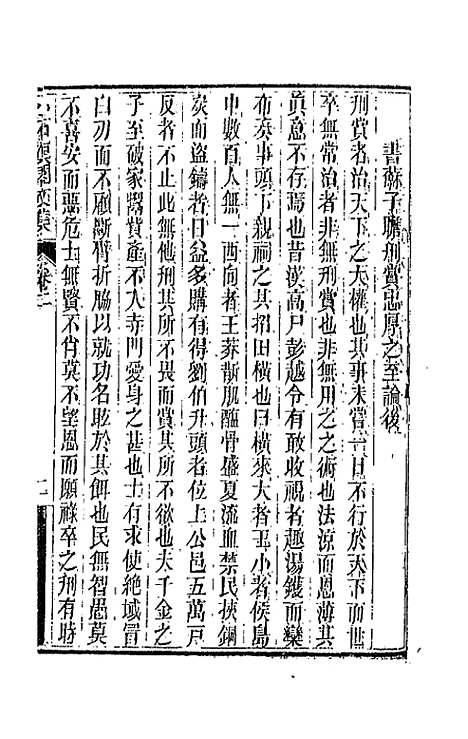 書蘇子瞻刑賞忠厚之至論後
刑賞者治天下之大權也其事未嘗一日不行於天下而世
卒無常治者非無刑賞也非無用之之術也法涼而恩薄其
眞意不存焉也昔漢高尸彭越令有敢收視者趣湯鑊而欒
布奏事頭下親祠之其招田橫也曰橫來大者王小者侯島
中數百人無一西向者王莽斮肌醢骨盛夏流血禁民挾銅
炭而盜鑄者日益多購有得劉伯升頭者位上公邑五萬戸
反者不止此無他刑其所不畏而賞其所不欲也夫千金之
子至破家鬻貲產不入寺門愛身之甚也士有求使絶域冒
白刃而不顧斷臂折脇以就功名眩於其餌也民無智愚莫
不喜安而惡危士無賢不肖莫不望恩而願祿卒之刑有時
文集
卷二